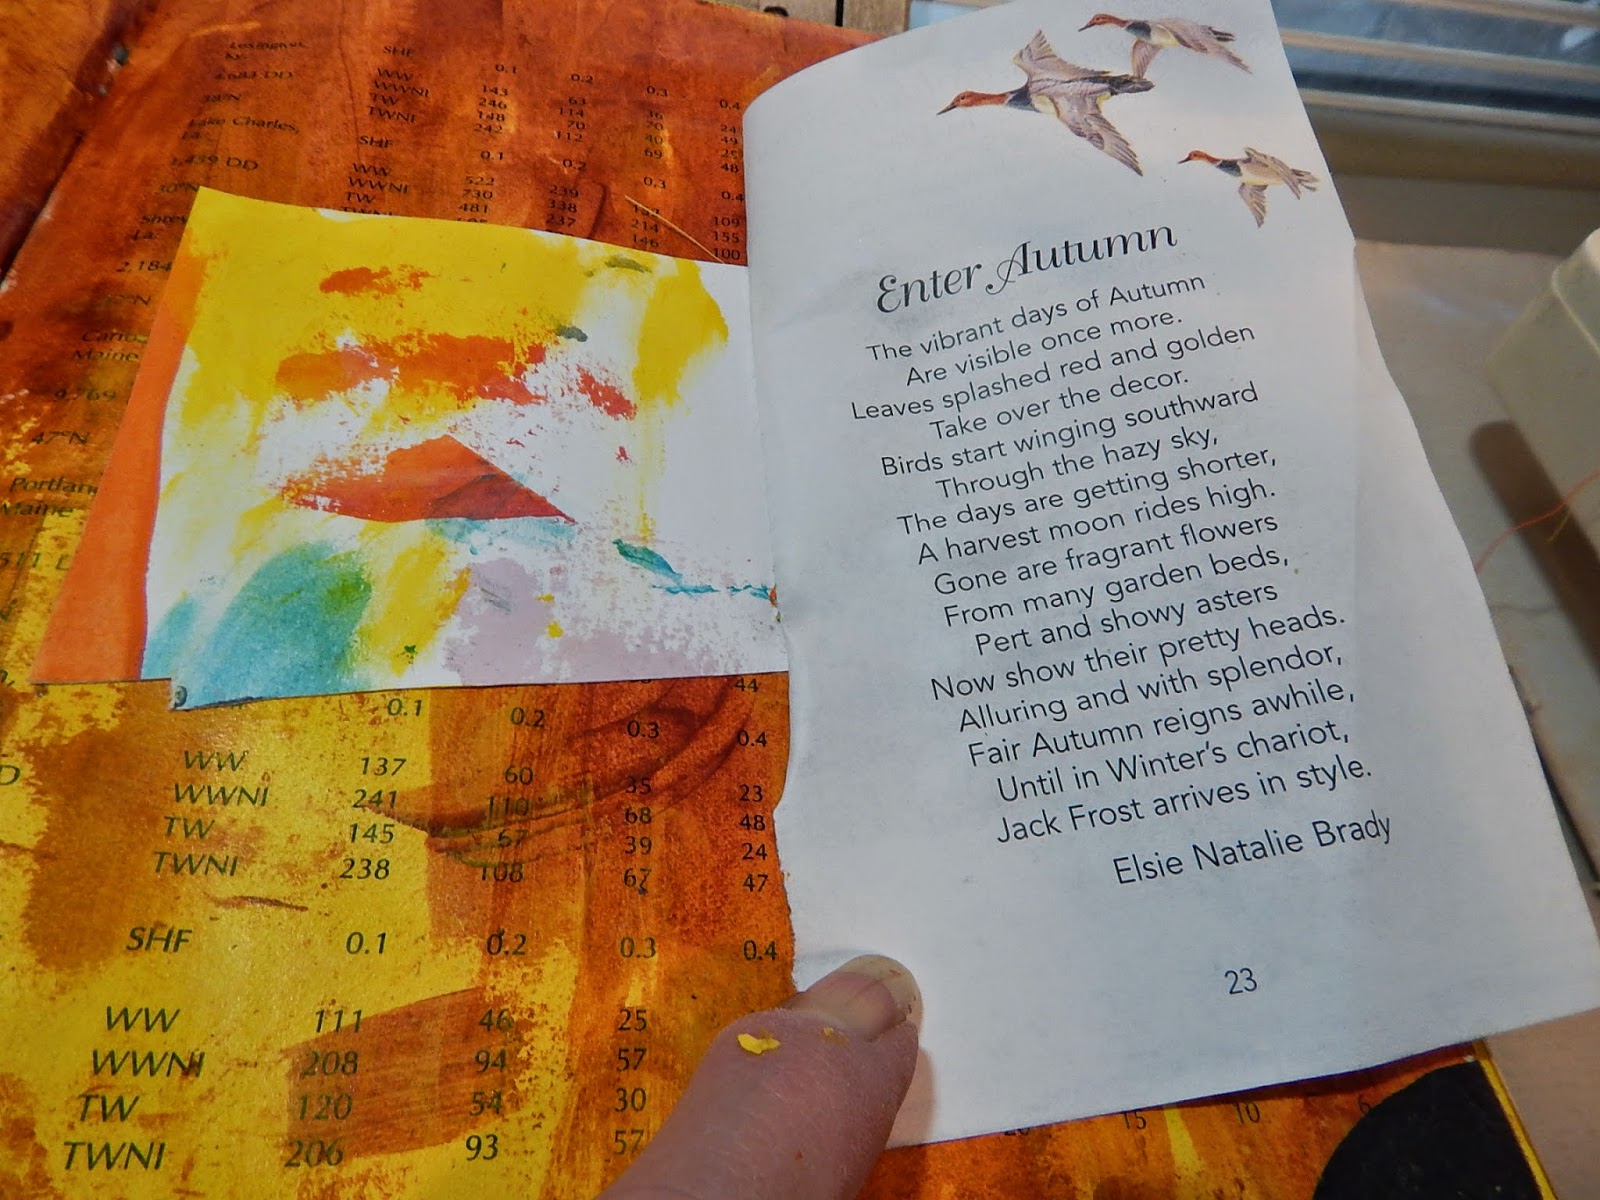 Lexington,
Ky.
SHF 0.1 0.2 0.3 0.4
4,683 DD WW 143 63 36 24
38°N WWNI 246 114 70 49
TW 148 70 40 25
TWNI 242 112 69 48
Lake Charles,
La.
SHF 0.1 0.2 0.3 0.4
1,459 DD WW 522 239 109
30°N WWNI 730 338 214 155
TW 481 237 146 100
TWNI
La.
2,184
Maine
9,769
47°N
Portland
Maine
511
44
0.1 0.2 0.3 0.4
WW 137 60 35 23
WWNI 241 110 68 48
TW 145 67 39 24
TWNI 238 108 67 47
SHF 0.1 0.2 0.3 0.4
WW 111 46 25
WWNI 208 94 57
TW 120 54 30
TWNI 206 93 57
15 10
Enter Autumn
The vibrant days of Autumn
Are visible once more.
Leaves splashed red and golden
Take over the decor.
Birds start winging southward
Through the hazy sky,
The days are getting shorter,
A harvest moon rides high.
Gone are fragrant flowers
From many garden beds,
Pert and showy asters
Now show their pretty heads.
Alluring and with splendor,
Fair Autumn reigns awhile,
Until in Winter's chariot,
Jack Frost arrives in style.
Elsie Natalie Brady
23